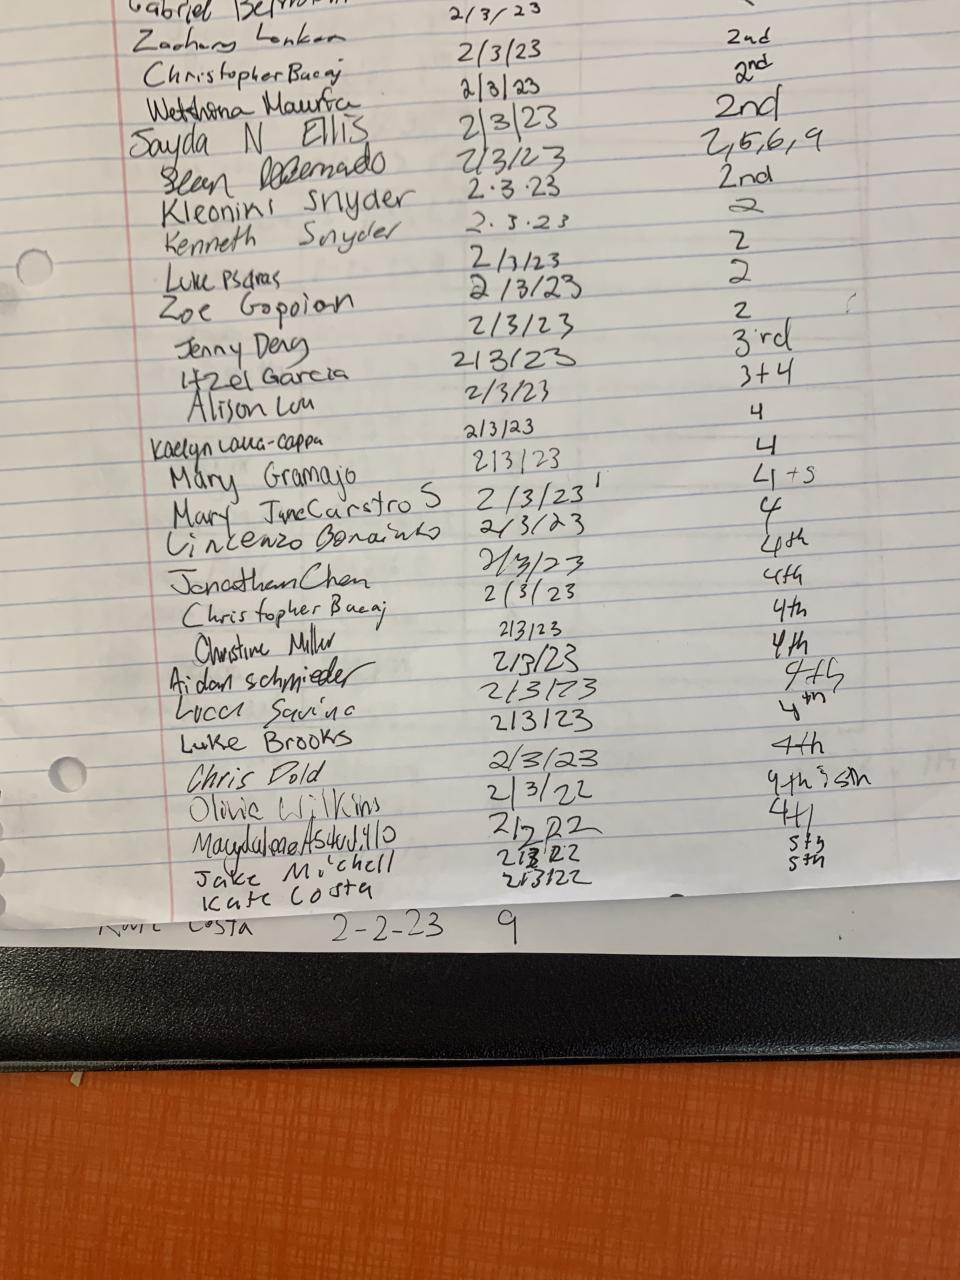 Gabriel 2/3/23
Zachary Lenken 2/3/23 2nd
Christopher Bacaj 2/3/23 2nd
Maurta 2/3/23 2nd
Sayda N Ellis 2/3/23 2,5,6,9
Sean 2/3/23 2nd
Kleonini Snyder 2.3.23 2
Kenneth Snyder 2.3.23 2
Luke Psaras 2/3/23 2
Zoe Gopoian 2/3/23 2
Jenny Deng 2/3/23 3rd
Itzel Garcia 2/3/23 3+4
Alison Lou 2/3/23 4
Kaelyn 2/3/23 4
Mary Gramajo 2/3/23 4+5
Mary Jane Carstro S 2/3/23 4
Vincenzo 2/3/23 4th
Jonathan Chen 2/3/23 4th
Christopher Bacaj 2/3/23 4th
Christine Miller 2/3/23 4th
Aidan Schmieder 2/3/23 4th
Lucca Savino 2/3/23 4th
Luke Brooks 2/3/23 4th
Chris Dold 2/3/23 4th & 5th
Olivia Wilkins 2/3/22 4th
2/2/22 5th
Jake Mitchell 2/3/22 5th
Kate Costa 2/3/22
Costa 2-2-23 9